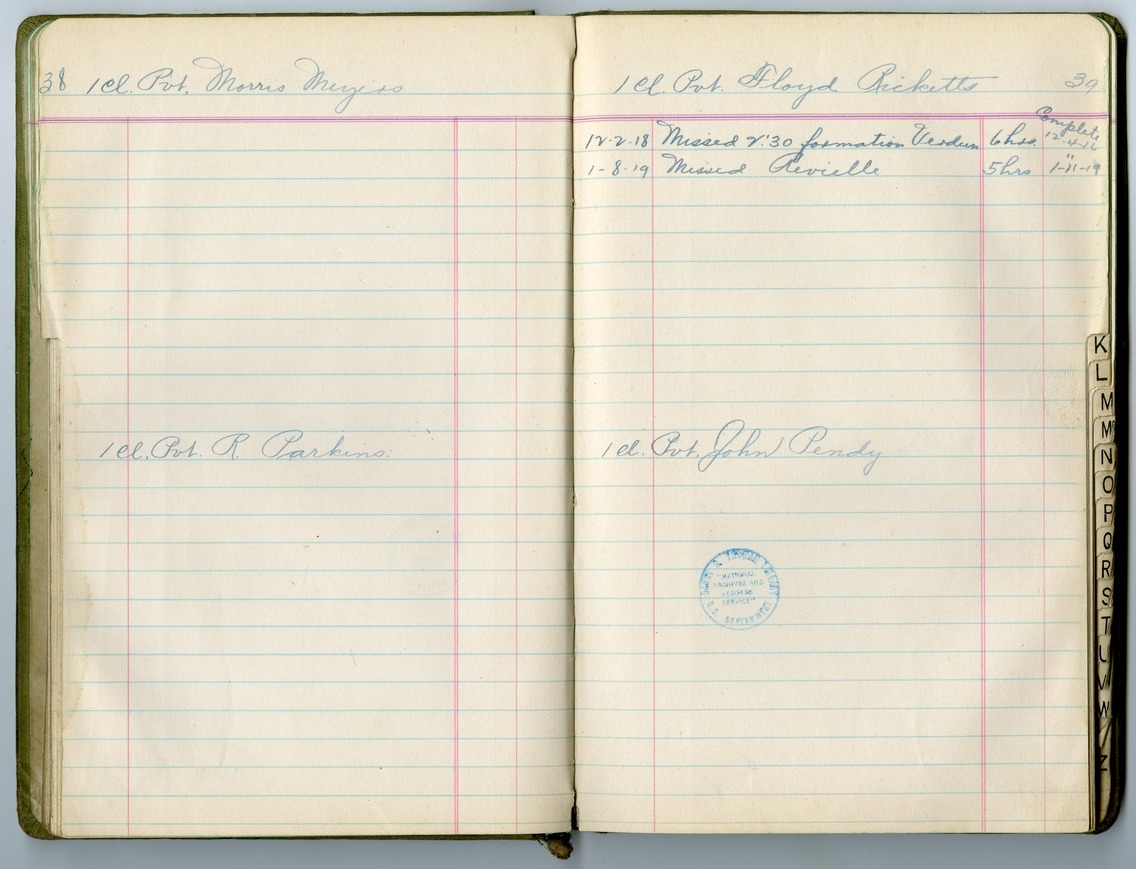 38 1 Cl. Pvt. Morris Meyers
1 Cl. Pvt. R. Parkins.
1 Cl. Pvt. Floyd Ricketts 39
Complete
12-2-18 Missed 2:30 formation Verdun 6 hrs. 12-4-18
1-8-19 Missed Revielle 5 hrs " 1-11-19
1 Cl. Pvt. John Pendy
"NATIONAL
ARCHIVES AND
RECORDS
SERVICE"
K
L
M
Mc
N
O
P
Q
R
S
T
U
V
W
Z